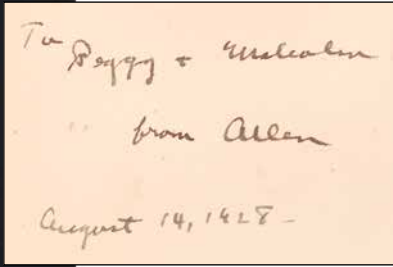 To
Peggy + Malcolm
from Allen
August 14, 1928 -